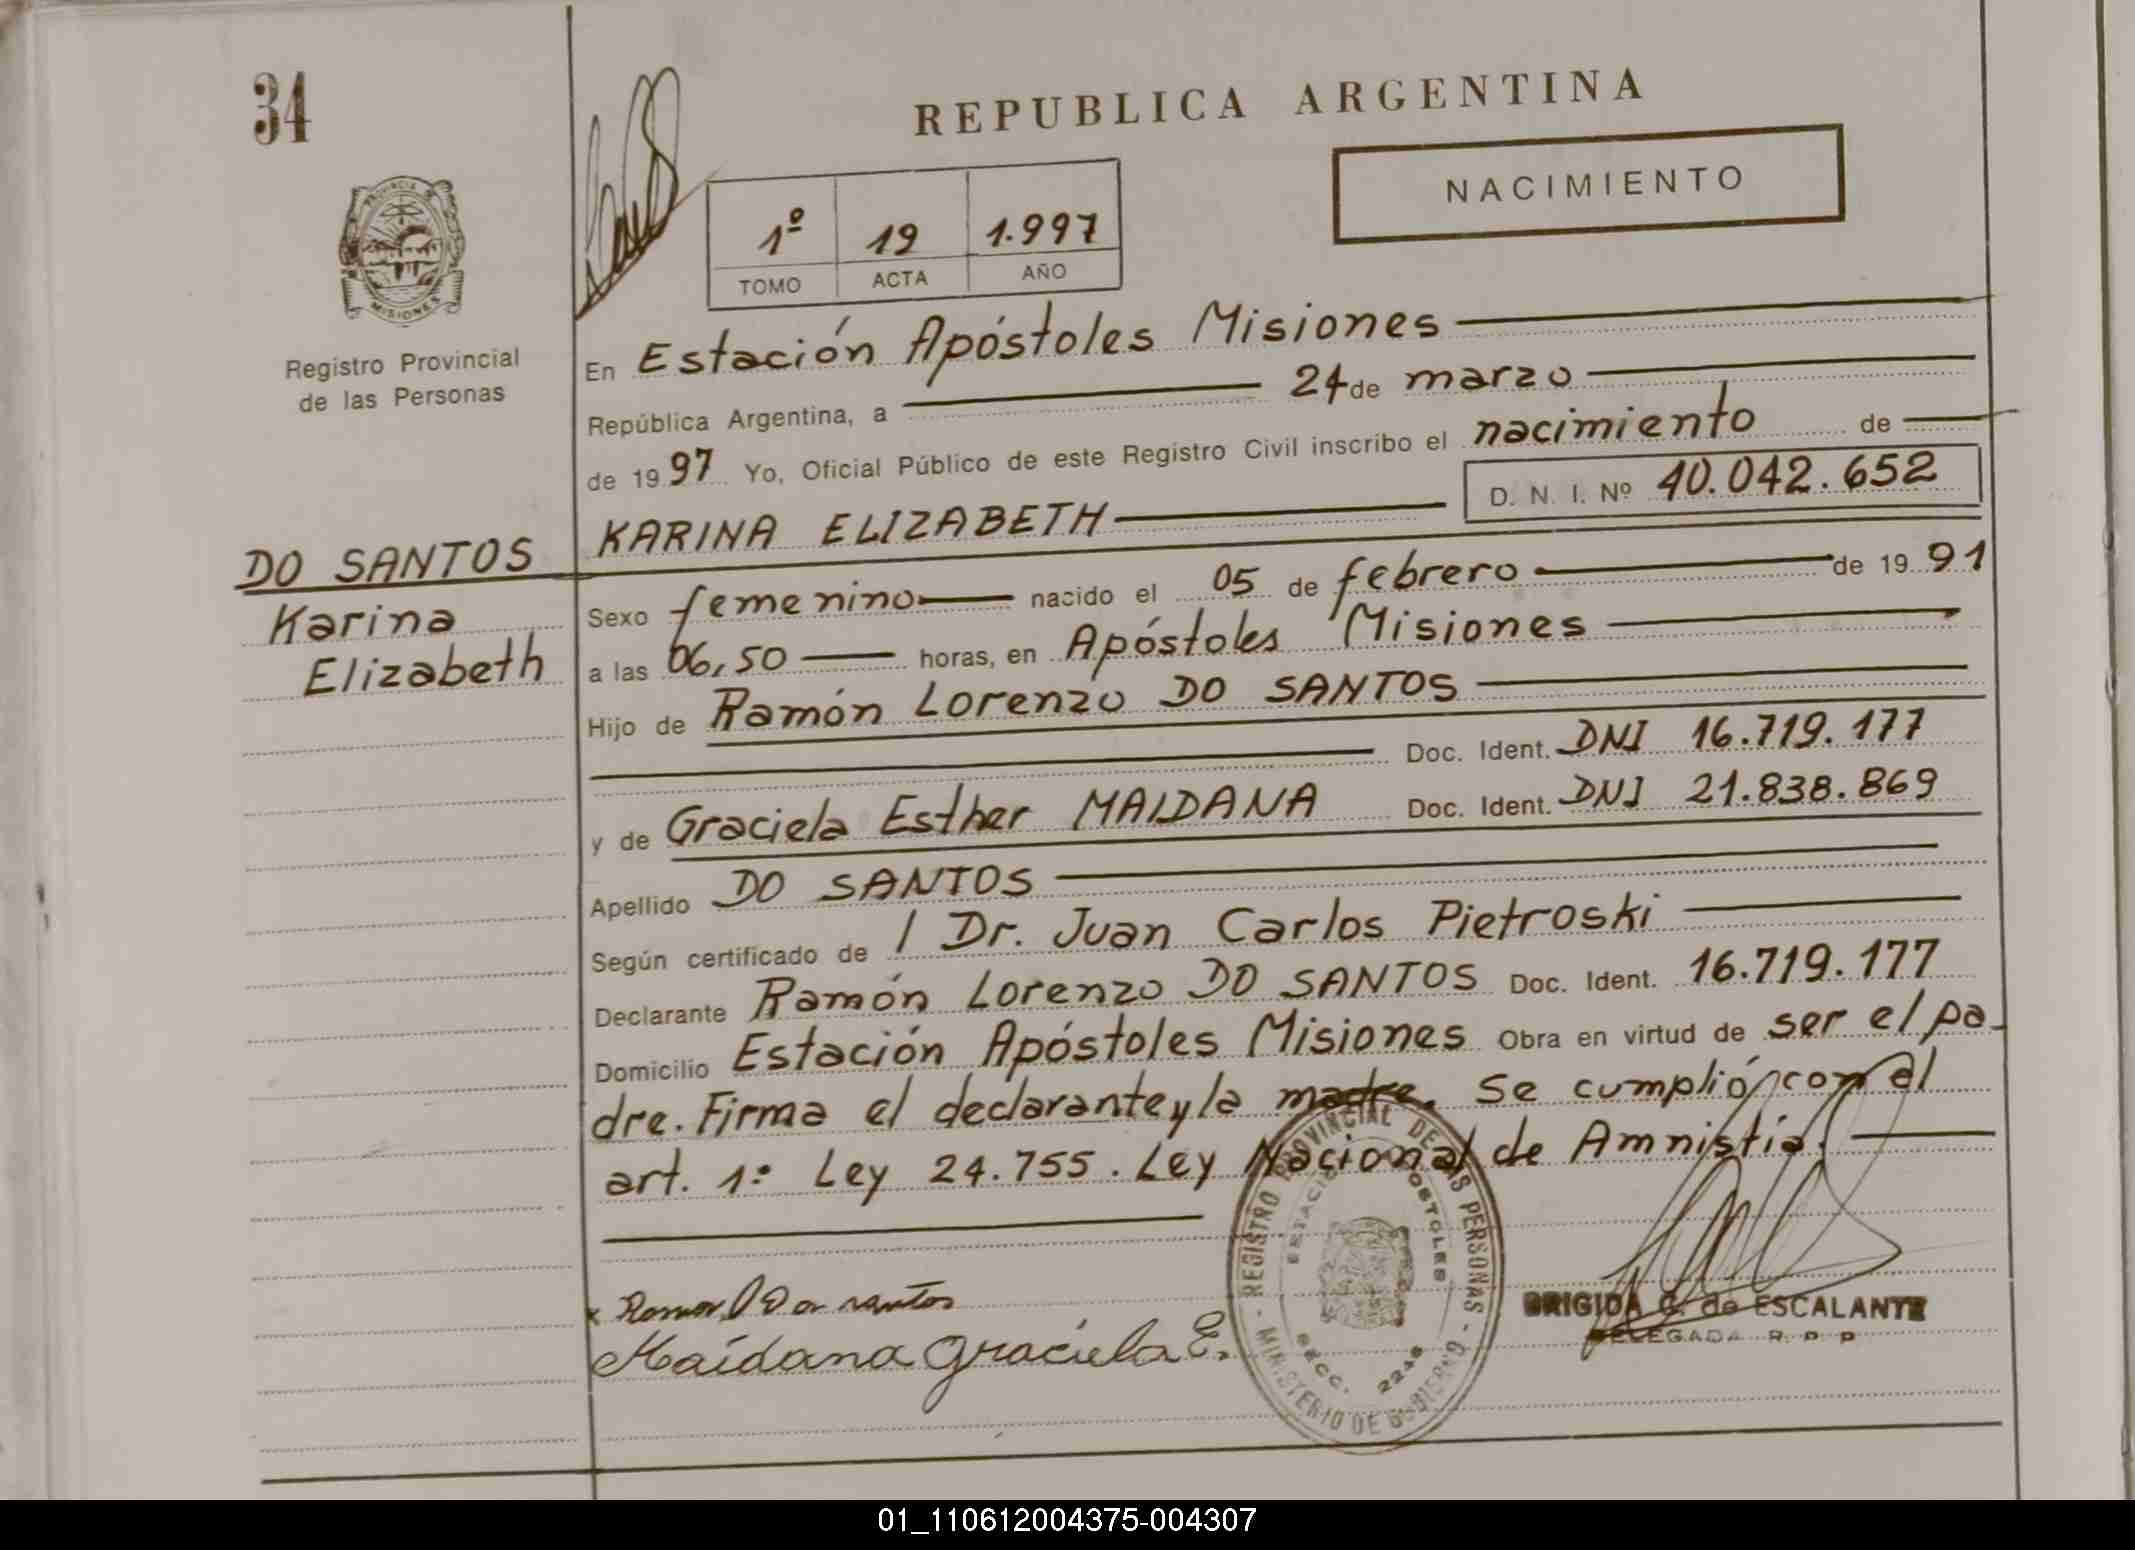 34
REPUBLICA ARGENTINA
NACIMIENTO
1º 19 1.997
TOMO ACTA AÑO
PROVINCIA DE
MISIONES
Registro Provincial
de las Personas
En Estación Apóstoles Misiones
República Argentina, a 24 de marzo
de 1997 Yo, Oficial Público de este Registro Civil inscribo el nacimiento de
D. N. I. Nº 40.042.652
DO SANTOS KARINA ELIZABETH
Karina
Elizabeth
Sexo femenino nacido el 05 de febrero de 1991
a las 06,50 horas, en Apóstoles Misiones
Hijo de Ramón Lorenzo DO SANTOS
Doc. Ident. DNI 16.719.177
y de Graciela Esther MAIDANA Doc. Ident. DNI 21.838.869
Apellido DO SANTOS
Según certificado de / Dr. Juan Carlos Pietroski
Declarante Ramón Lorenzo DO SANTOS Doc. Ident. 16.719.177
Domicilio Estación Apóstoles Misiones Obra en virtud de ser el pa-
dre. Firma el declarante y la madre. Se cumplió con el
art. 1º Ley 24.755. Ley Nacional de Amnistía.
- REGISTRO PROVINCIAL DE LAS PERSONAS -
MINISTERIO DE GOBIERNO
ESTACION APOSTOLES
SECC. 2248
Maidana Graciela E.
BRIGIDA G. de ESCALANTE
DELEGADA R. P. P
01_110612004375-004307